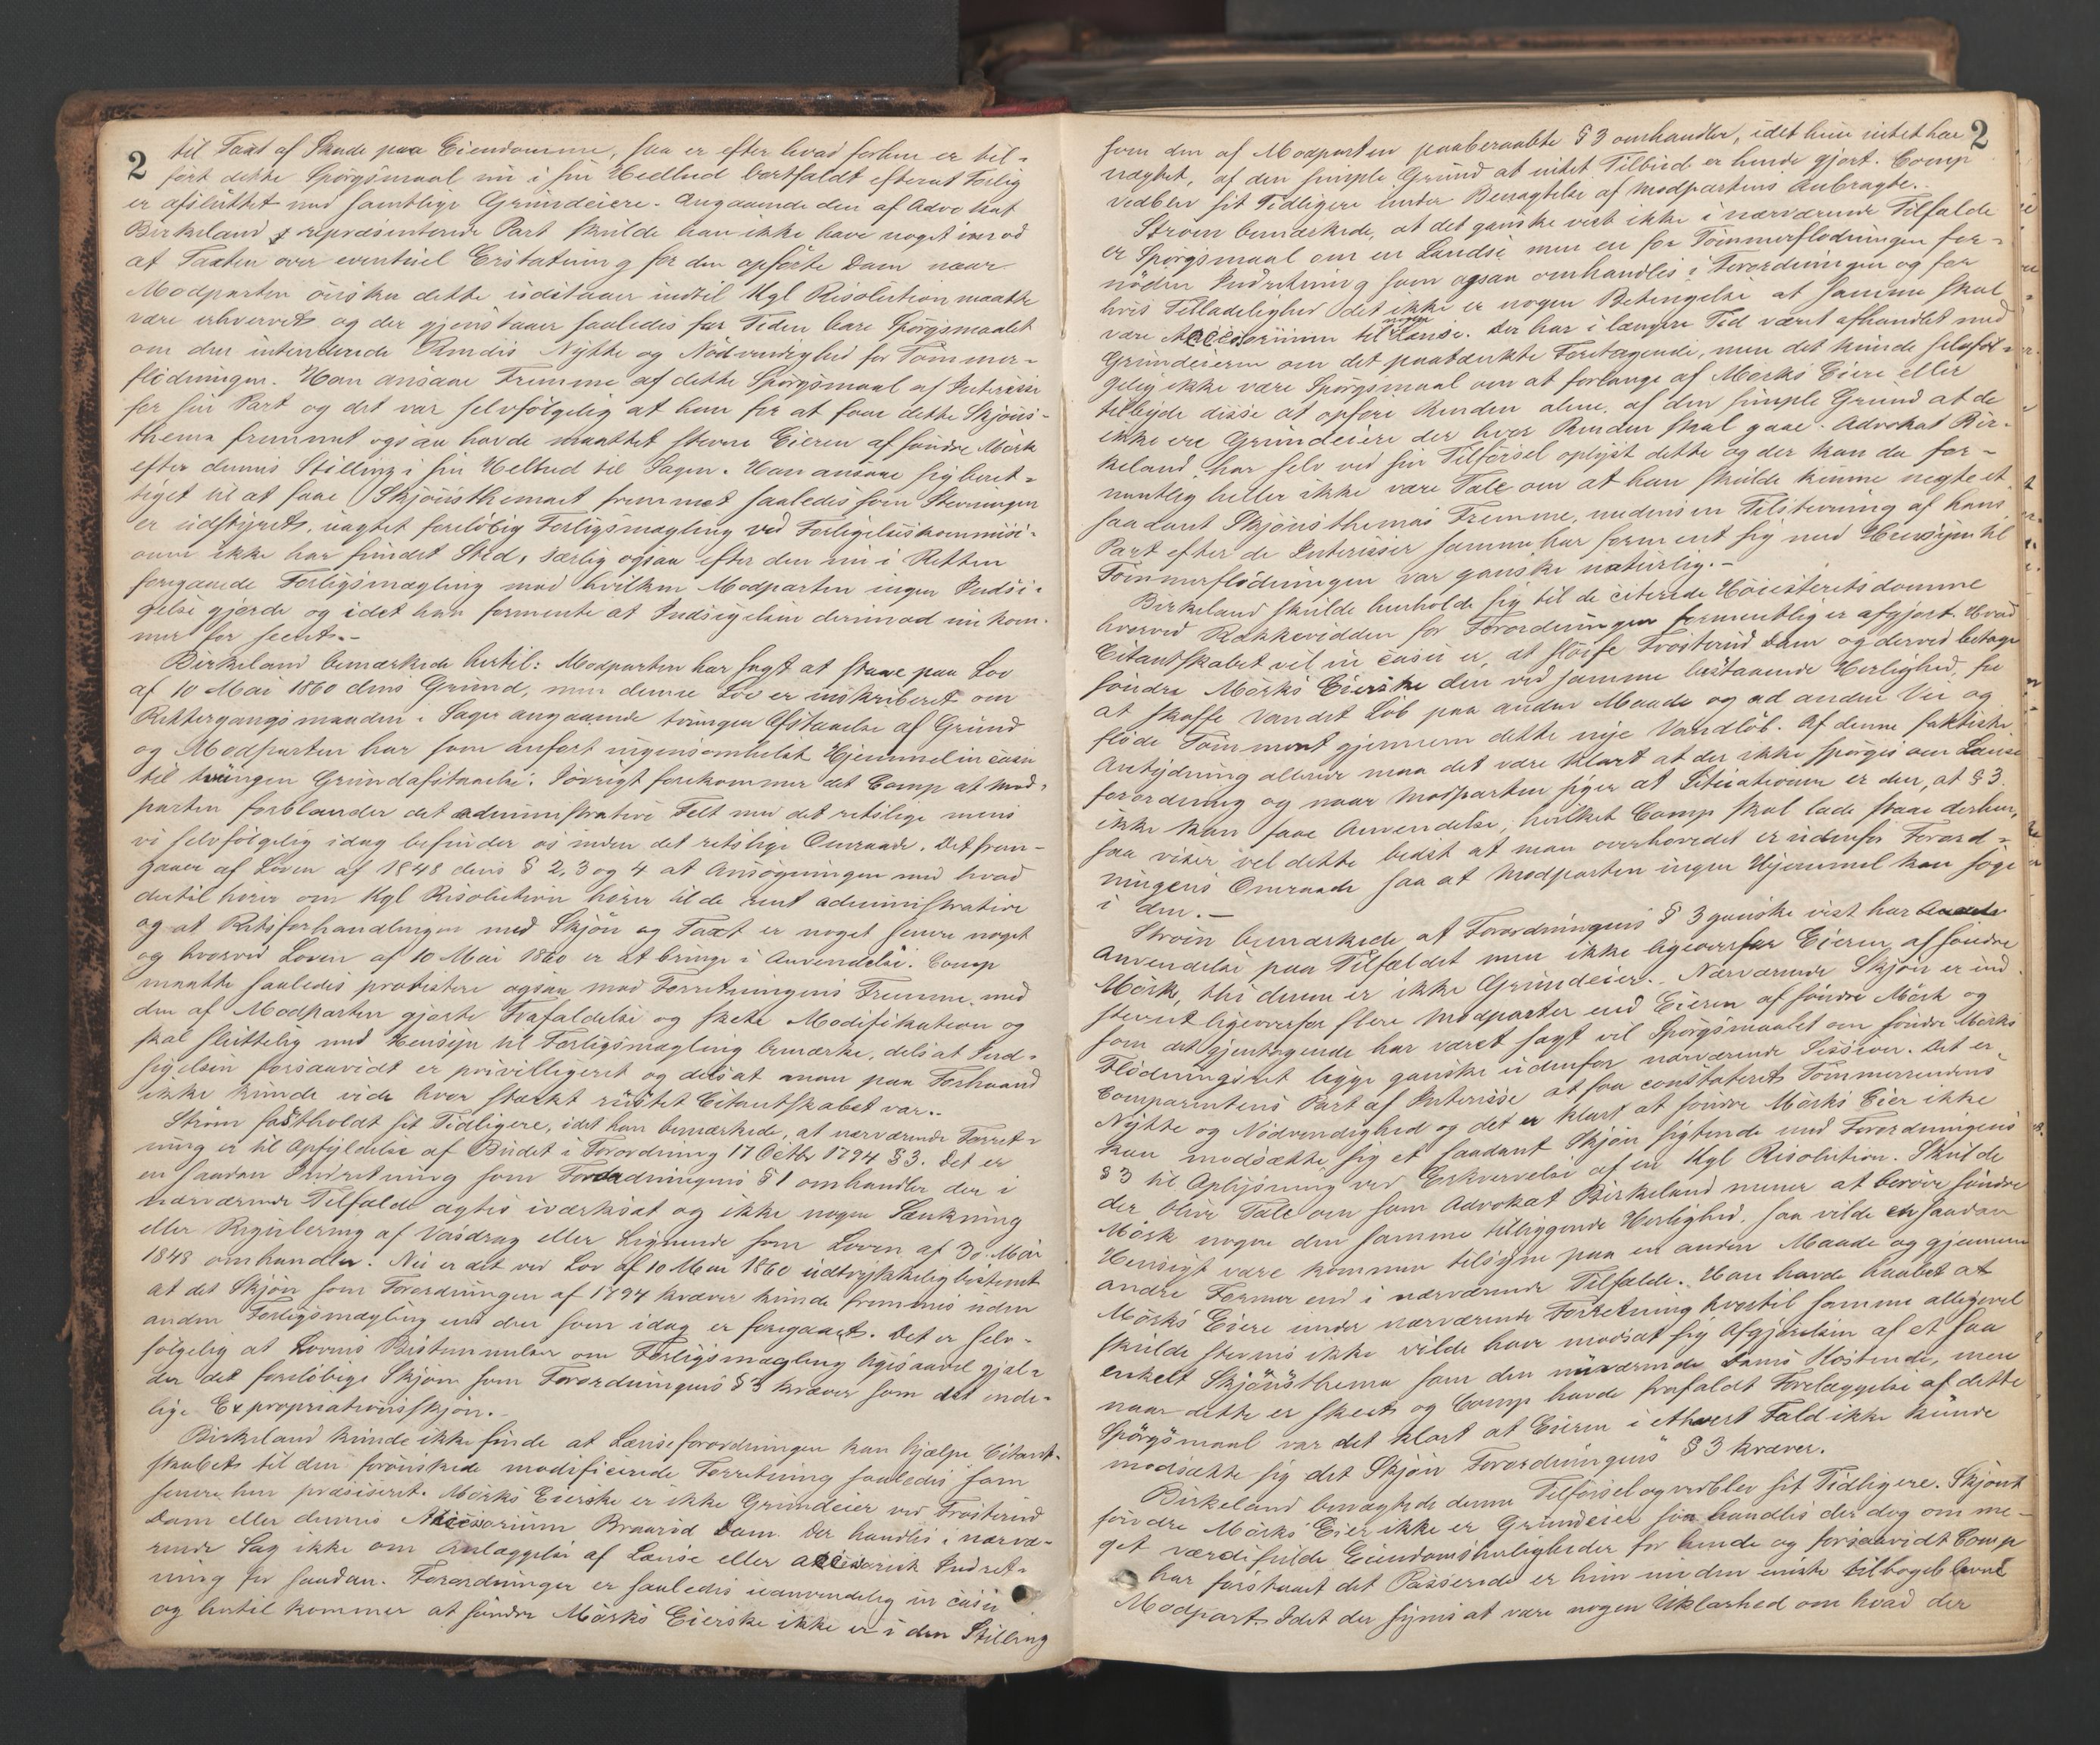 2
til Taxt af Skade paa Eiendomme, saa er efter hvad forhen er til-
ført dette Spörgsmaal nu i sin Helhed bortfaldt efterat Forlig
er afsluttet med samtlige Grundeiere. Angaaende den af Advokat
Birkeland repræsenterede Part skulde han ikke have noget imod
at Taxten over eventuel Erstatning for den opförte Dam naar
Modparten önsker dette udstaaer indtil Kgl Resolution maatte
være erhvervet og der gjenstaaer saaledes for Tiden bare Spörgsmaalet
om den intenderede Rendes Nytte og Nödvendighed for Tömmer-
flödningen. Han ansaae Fremme af dette Spörgsmaal af Interesse
for sin Part og det var selvfölgelig at han for at faae dette Skjöns-
thema fremmet ogsaa havde maattet stevne Eieren af söndre Mörk
efter dennes Stilling i sin Helhed til Sagen. Han ansaae sig beret-
tiget til at faae Skjönsthemaet fremmet saaledes som Stevningen
er udstyret, uagtet foreløbig Forligsmægling ved Forligelseskommissi-
onen ikke har fundet Sted, særlig ogsaa efter den nu i Retten
foregaaede Forligsmægling mod hvilken Modparten ingen Indsi-
gelse gjorde og idet han formente at Indsigelsen derimod nu kom-
mer for seent.-
Birkeland bemærkede hertil: Modparten har sagt at staae paa Lov
af 10 Mai 1860 dens Grund, men denne Lov er inskriberet om
Rettergangsmaaden i Sager angaaende tvungen Afstaaelse af Grund
og Modparten har som anfört ingensomhelst Hjemmel in casu
til tvungen Grundafstaaelse. Iövrigt forekommer det Comp at Mod-
parten forblander det administrative Felt med det retslige mens
vi selvfölgelig idag befinder os inden det retslige Omraade. Det frem-
gaaer af Loven af 1848 dens § 2, 3 og 4 at Ansögningen med hvad
dertil hörer om Kgl Resolution hörer til de rent administrative
og at Retsforhandlingen med Skjön og Taxt er noget senere noget
og hvorved Loven af 10 Mai 1860 er at bringe i Anvendelse. Comp
maatte saaledes protestere ogsaa mod Forretningens Fremme med
den af Modparten gjorte Frafaldelse og skete Modifikation og
skal sluttelig med Hensyn til Forligsmægling bemærke, dels at Ind-
sigelsen forsaavidt er privilligeret og dels at man paa Forhaand
ikke kunde vide hvor stærkt rustet Citantskabet var.-
Ström fastholdt sit Tidligere, idet han bemærkede, at nærværende Forret-
ning er til Opfyldelse af Budet i Forordning 17 Octbr 1794 § 3. Det er
en saadan Indretning som Forordningens § 1 omhandler der i
nærværende Tilfælde agtes iværksat og ikke nogen Sænkning
eller Regulering af Vasdrag eller Lignende som Loven af 30. Mai
1848 omhandler. Nu er det ved Lov af 10 Mai 1860 udtrykkelig bestemt
at det Skjön som Forordningen af 1794 kræver kunde fremmes uden
anden Forligsmægling end den som idag er foregaaet. Det er selv-
fölgelig at Lovens Bestemmelser om Forligsmægling ligesaavel gjæl-
der det foreløbige Skjön som Forordningens § 3 kræver som det ende-
lige Expropriationsskjön.-
Birkeland kunde ikke finde at Lænseforordningen kan hjælpe Citant-
skabet til den forönskede modificerede Forretning saaledes som
senere hen præsiseret. Mörks Eierske er ikke Grundeier ved Frösterud
Dam eller dennes Accessorium Braarød Dam. Der handles i nærvæ-
rende Sag ikke om Anlæggelse af Lænse eller accessorisk Indret-
ning for saadan. Forordningen er saaledes uanvendelig in casu
og hertil kommer at söndre Mörks Eierske ikke er i den Stilling
2
som den af Modparten paaberaabte § 3 omhandler, idet hun intet har
nægtet, af den simple Grund at intet Tilbud er hende gjort. Comp
vedblev sit Tidligere under Benægtelse af Modpartens Anbragte.-
Ström bemærkede, at det ganske vist ikke i nærværende Tilfælde
er Spörgsmaal om en Landse men en for Tömmerflødningen for-
nöden Indretning som ogsaa omhandles i Forordningen og for
hvis Tilladelighed det ikke er nogen Betingelse at samme skal
være Accessorium til nogen Lænse. Der har i længere Tid været afhandlet med
Grundeierne om det paatænkte Foretagende, men det kunde selvföl-
gelig ikke være Spörgsmaal om at forlange af Mörks Eiere eller
tilbyde disse at opföre Renden alene, af den simple Grund at de
ikke ere Grundeiere der hvor Renden skal gaae. Advokat Bir-
keland har selv ved sin Tilförsel oplyst dette og der kan da for-
mentlig heller ikke være Tale om at han skulde kunne negte et
saadant Skjönsthemas Fremme, medens en Tilstevning af hans
Part efter de Interesser samme har forment sig med Hensyn til
Tömmerflödningen var ganske naturlig.-
Birkeland skulde henholde sig til de citerede Höiesteretsdomme
hvorved Rækkevidden for Forordningen formentlig er afgjort. Hvad
Citantskabet vil in casu er, at slöife Frösterud Dam og derved betage
söndre Mörks Eierske den ved samme bestaaende Herlighed, for
at skaffe Vandet Löb paa anden Maade og ad anden Vei og
flöde Tömmeret gjennem dette nye Vandløb. Af denne faktiske
Antydning allerede maa det være klart at der ikke spörges om Lænse
forordning og naar Modparten siger at Situationen er den, at § 3
ikke kan faae Anvendelse, hvilket Comp skal lade staae derhen,
saa viser vel dette bedst at man overhovedet er udenfor Forord-
ningens Omraade saa at Modparten ingen Hjemmel kan söge
i den.-
Ström bemærkede at Forordningens § 3 ganske vist har
Anvendelse paa Tilfældet men ikke ligeoverfor Eieren af söndre
Mörk, thi denne er ikke Grundeier. Nærværende Skjön er ind-
stevnt ligeoverfor flere Modparter end Eieren af söndre Mörk og
som det gjentagende har været sagt vil Spörgsmaalet om söndre Mörks
Flödningsret ligge ganske udenfor nærværende Session. Det er
Comparentens Part af Interesse at faa constateret Tömmerrendens
Nytte og Nödvendighed og det er klart at söndre Mörks Eier ikke
kan modsætte sig et saadant Skjön sigtende med Forordningens
§ 3 til Oplysning ved Erhvervelse af en Kgl Resolution. Skulde
der blive Tale om som Advokat Birkeland mener at berøve söndre
Mörk nogen den samme tilliggende Herlighed, saa vilde en saadan
Hensigt være kommen tilsyne paa en anden Maade og gjennem
andre Former end i nærværende Tilfælde. Han havde haabet at
Mörks Eiere under nærværende Forretning hvortil samme alligevel
skulde stevnes ikke vilde have modsat sig Afgjörelsen af et saa
enkelt Skjönsthema som den nuværende Dams Kostende, men
naar dette er skeet og Comp havde frafaldt Forelæggelse af dette
Spörgsmaal var det klart at Eieren i ethvert Fald ikke kunde
modsætte sig det Skjön Forordningens § 3 kræver.
Birkeland benægtede denne Tilförsel og vedblev sit Tidligere. Skjönt
söndre Mörks Eier ikke er Grundeier saa handles der dog om me-
get værdifulde Eiendomsherligheder for hende og forsaavidt Comp
har forstaaet det Passerede er hun nu den eneste tilbageblevne
Modpart. Idet der synes at være nogen Uklarhed om hvad der